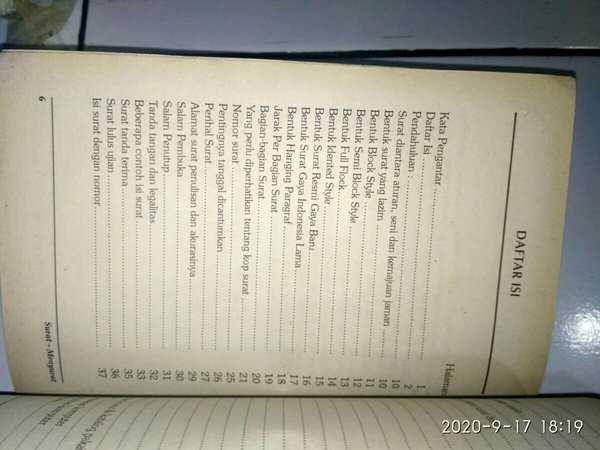 DAFTAR ISI
Halaman
Kata Pengantar ........ 1
Daftar Isi ........ 2
Pendahuluan : ........ 10
Surat diantara aturan, seni dan kemajuan jaman ........ 10
Bentuk surat yang lazim ........ 11
Bentuk Block Style ........ 12
Bentuk Semi Block Style ........ 13
Bentuk Full Flock ........ 14
Bentuk Idented Style ........ 15
Bentuk Surat Resmi Gaya Baru ........ 16
Bentuk Surat Gaya Indonesia Lama ........ 17
Bentuk Hanging Paragraf ........ 18
Jarak Per Bagian Surat ........ 19
Bagian-bagian Surat ........ 20
Yang perlu diperhatikan tentang kop surat ........ 21
Nomor surat ........ 25
Pentingnya tanggal dicantumkan ........ 26
Perihal Surat ........ 27
Alamat surat penulisan dan akurasinya ........ 29
Salam Pembuka ........ 30
Salam Penutup ........ 31
Tanda tangan dan legalitas ........ 32
Beberapa contoh isi surat ........ 33
Surat tanda terima ........ 35
Surat lulus ujian ........ 36
Isi surat dengan nomor ........ 37
6 Surat - Menyurat
2020-9-17 18:19